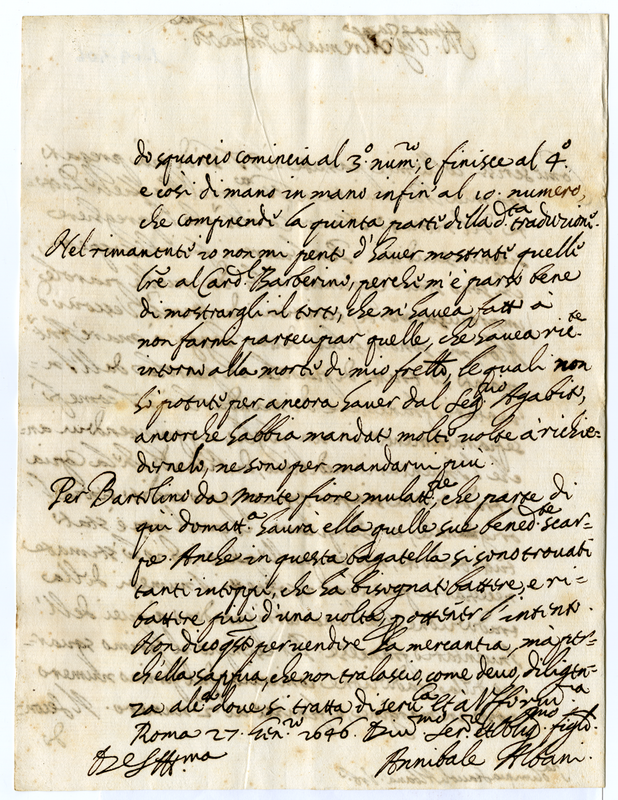 do squarcio comincia al 3.º num.º, e finisce al 4.º
e così di mano in mano infin' al 10. numero,
che comprende la quinta parte della d.ta traduzione.
Nel rimanente io non mi pento d'haver mostrate quelle
lre al Card.l Barberino, perche m'è parso bene
di mostrargli il torto, che m'havea fatto à
non farmi partecipar quelle, che havea rice.te
intorno alla morte di mio frello, le quali non
hò potute per ancora haver dal Seg.rio Agabito,
ancorche habbia mandato molte volte à richie-
dernelo, ne sono per mandarvi più.
Per Bartolino da Monte fiore mulatt.re, che parte di
qui domatt.a haurà ella quelle sue bened.te scar-
pe. Anche in questa bagatella si sono trovati
tanti intoppi, che hà bisognato battere, e ri-
battere più d'una volta, p ottener l'intento.
Non dico qsto per vendere la mercantia, mà per-
ch'ella sappia, che non tralascio, come devo, diligen-
za alc.a dove si tratta di serv.la Et à V.S.
Roma 27. Gen.ro 1646. Di V.S. Ser.re et Obl.mo figlio
Annibale Albani.